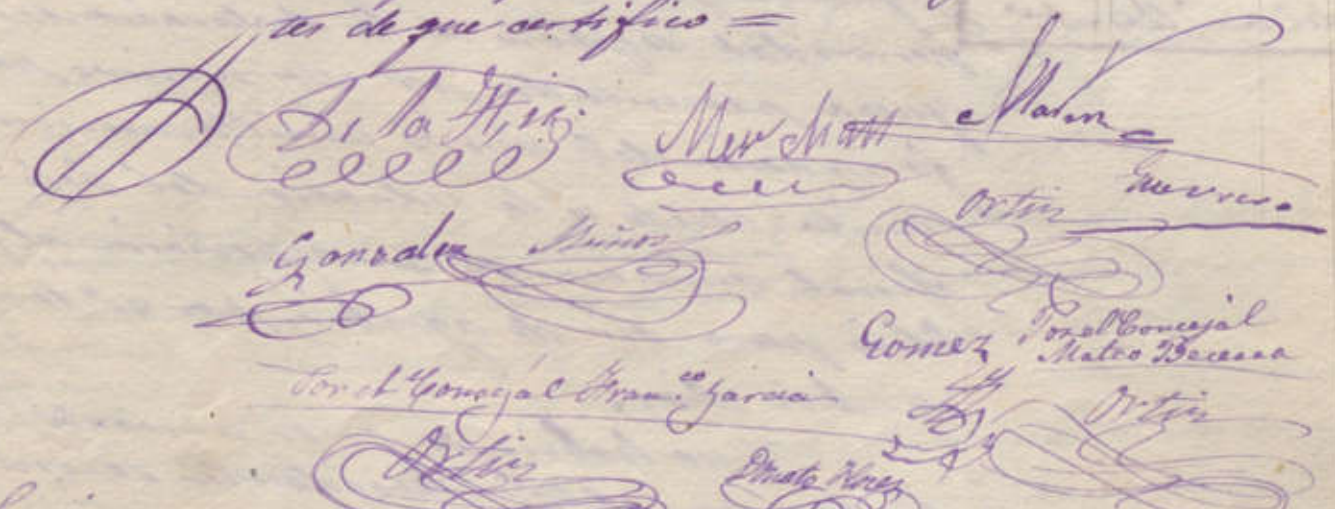 tes de que certifico =
De la Hiz. Merchan Marin
Guerrero
Ortiz
Gonzalez Muñoz
Gomez Por el Concejal
Mateo Becerra
Por el Concejal Fran.co Garcia
Ortiz
Ortiz
Flores